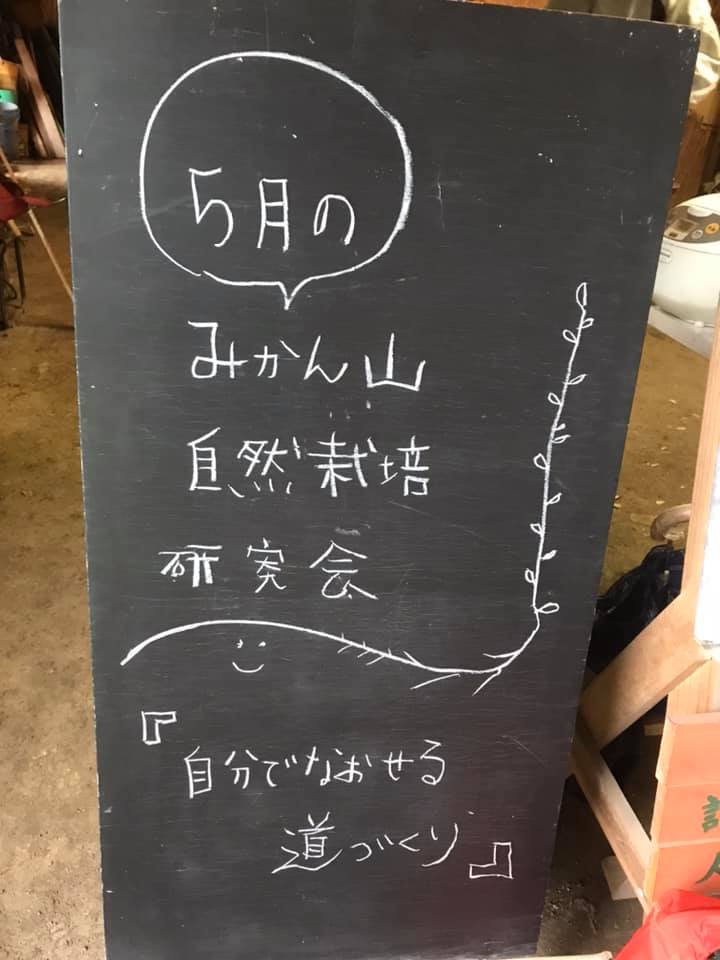 5月の
みかん山
自然栽培
研究会
『自分でなおせる
道づくり』